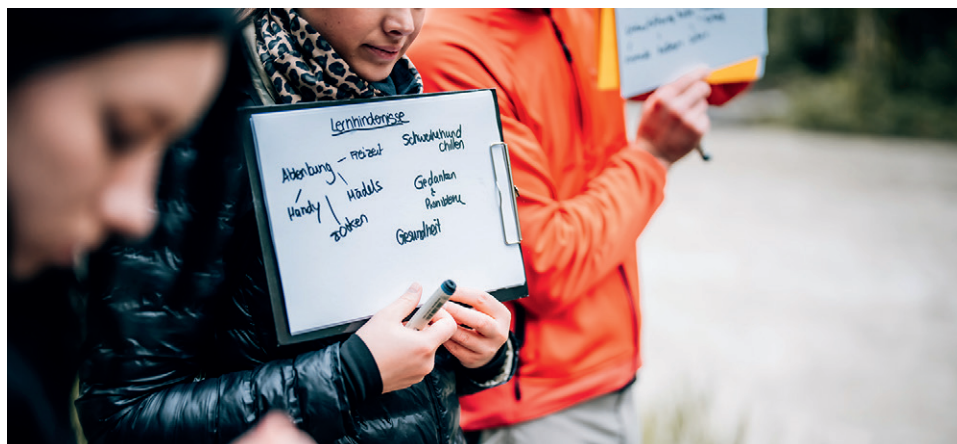 Lernhindernisse
Ablenkung - Freizeit
Handy
Mädels
zocken
Schweinehund
chillen
Gedanken
&
Probleme
Gesundheit